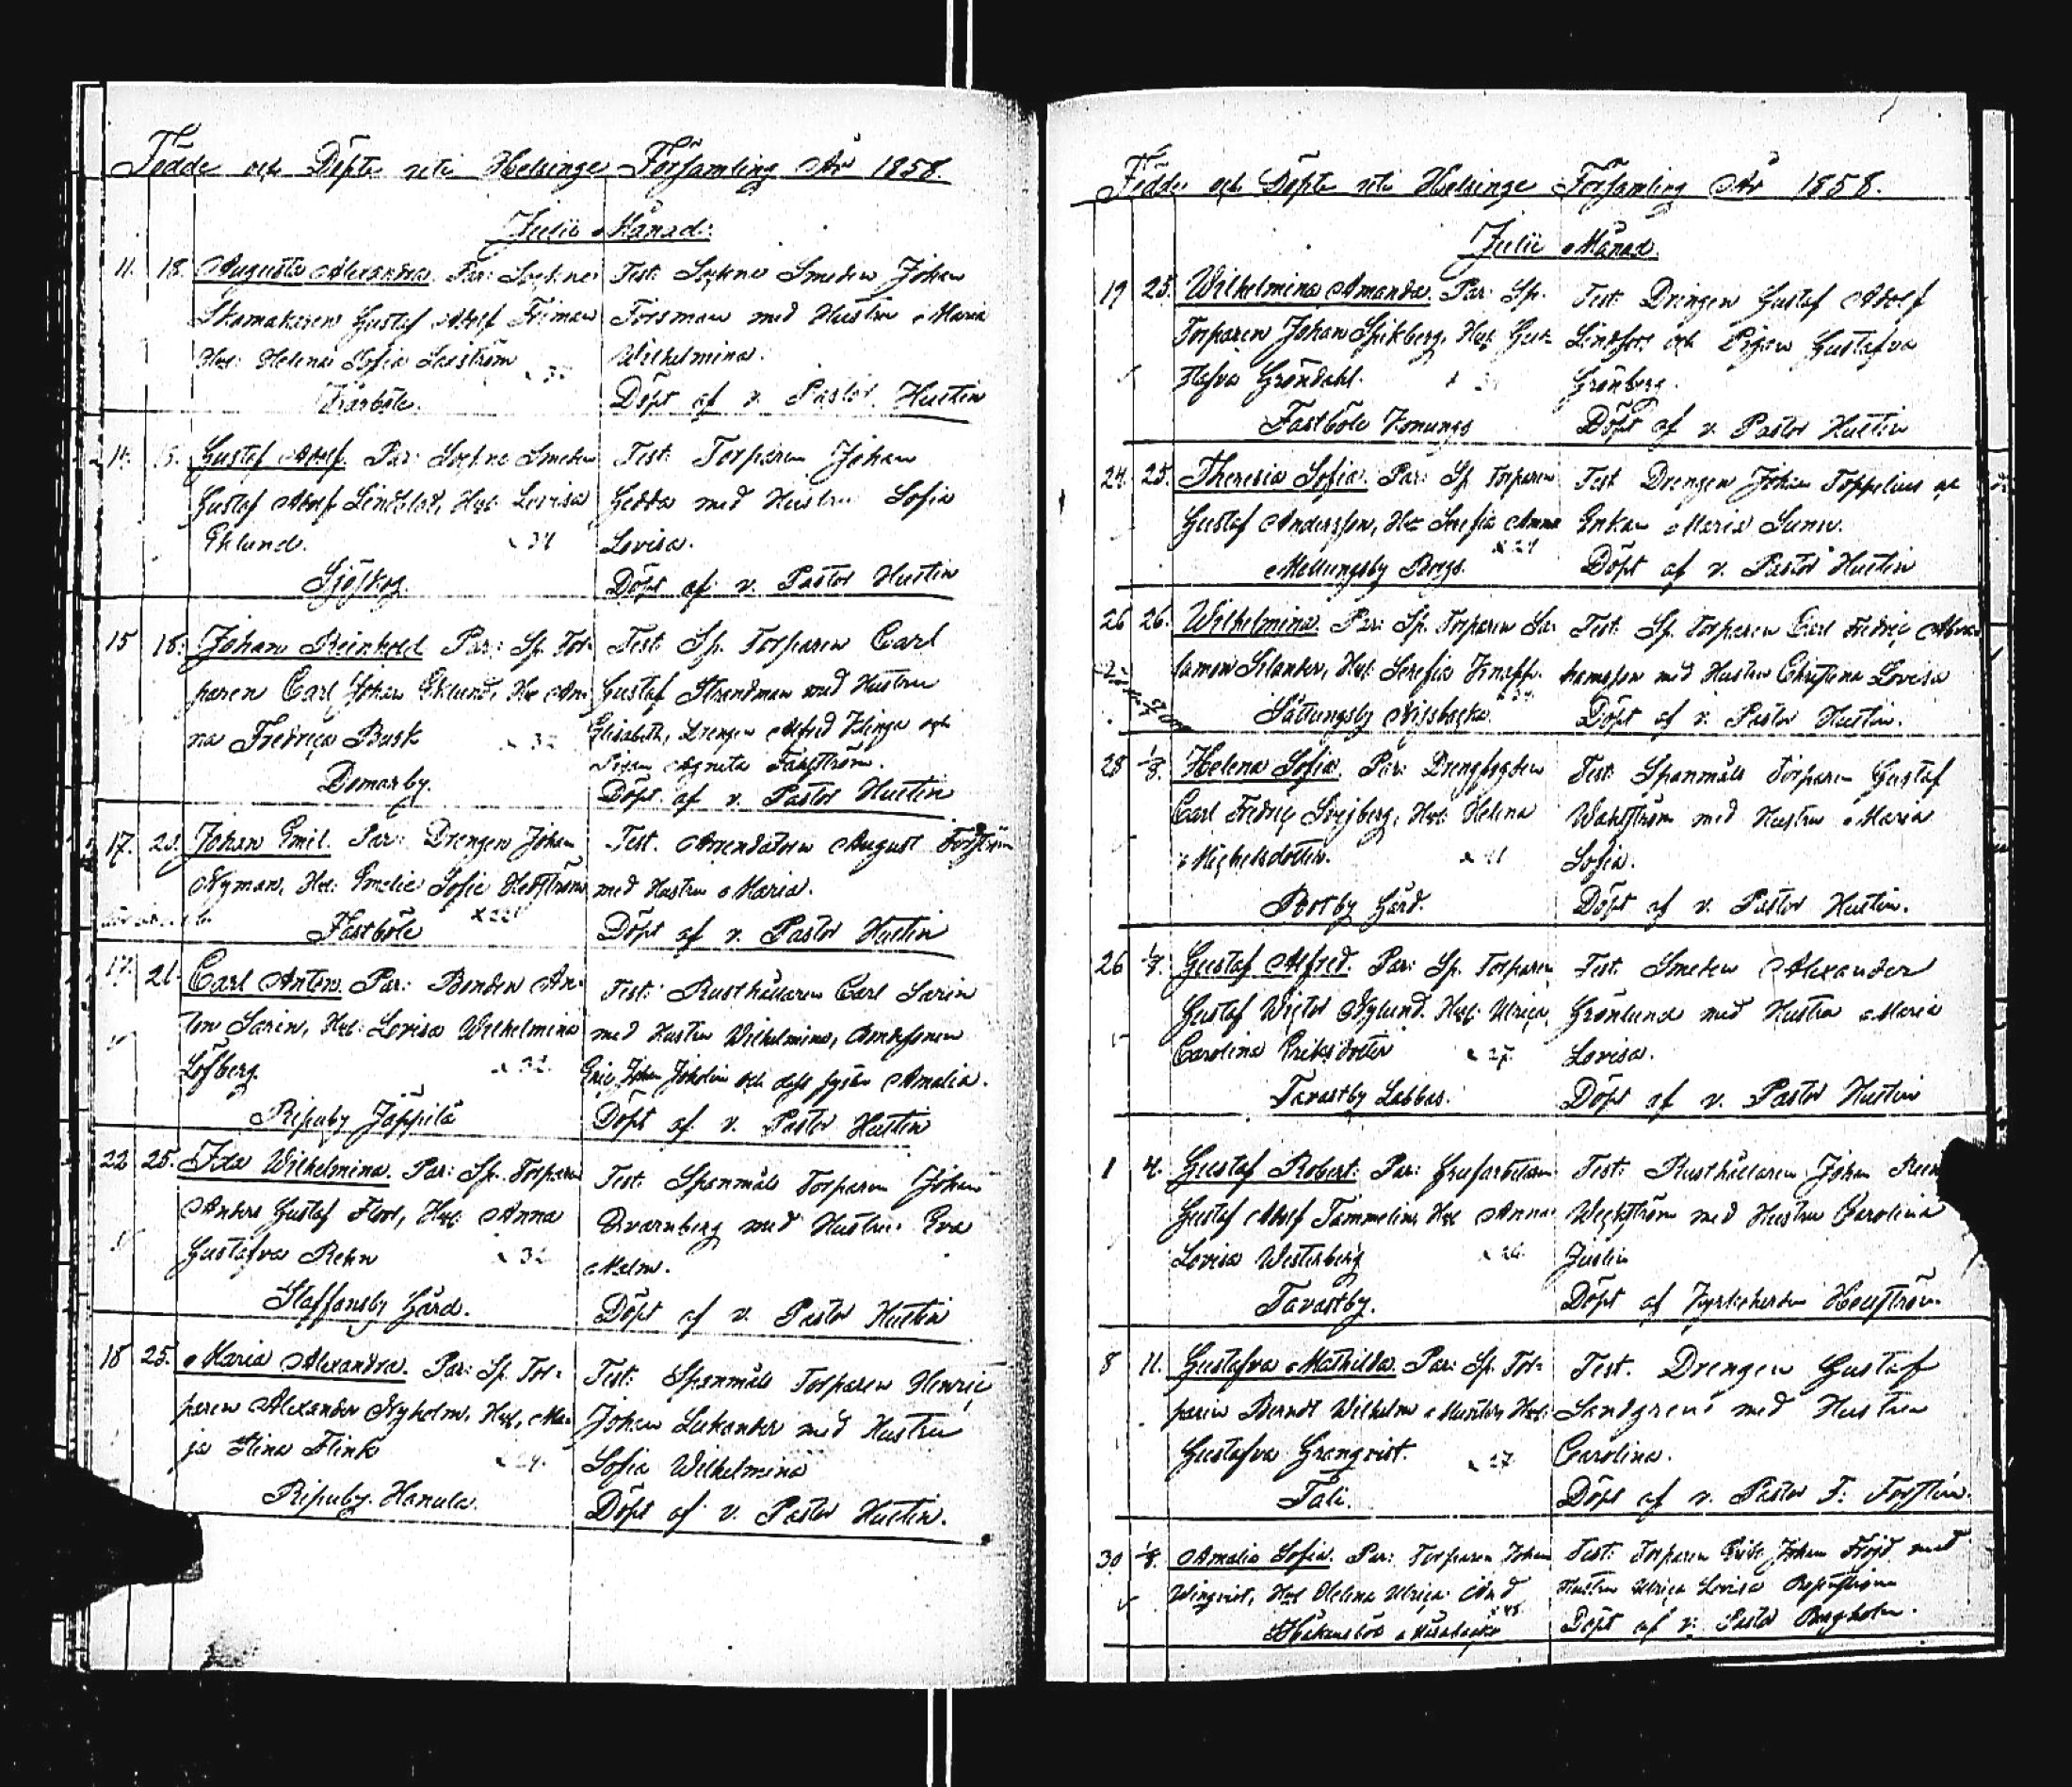 Födde och Döpte uti Helsinge Församling År 1858.
Julii Månad.
11. 18. Augusta Alexandra. Par: Sockne
Skomakaren Gustaf Adolf Friman
Hu: Helena Sofia
Test: Sockne Smeden Johan
Forsman med Hustru Maria
Wilhelmina.
Döpt af v. Pastor Hustin
Gustaf Adolf. Par: Sockne Smeden
Gustaf Adolf Lindblad, Hu: Lovisa
Eklund. x 34
Sjöskog.
Test: Torparen Johan
Gedda med Hustru Sofia
Lovisa.
Döpt af v. Pastor Hustin
15 18. Johan Reinhold Par: Sp. Tor-
paren Carl Johan Eklund, Hu An-
na Fredrica Busk x 32
Domarby.
Test: Sp. Torparen Carl
Gustaf Strandman med Hustru
Elisabeth, Drengen Alfred Klinga och
Pigan Agneta
Döpt af v. Pastor Hustin
17. Johan Emil. Par: Drengen Johan
Nyman, Hu: Emelie Sofie Hedström
Fastböle x 22
Test. Arrendatorn August
med Hustru Maria.
Döpt af v. Pastor Hustin
17. 21. Carl Anton. Par: Bonden An-
ton Sarin, Hu: Lovisa Wilhelmina
Löfberg. x 32
Ripuby Jäppilä
Test: Rusthållaren Carl Sarin
med Hustru Wilhelmina, Bondesonen
Eric Johan och dess syster Amalia.
Döpt af v. Pastor Hustin
22 25. Ida Wilhelmina. Par: Sp. Torparen
Anders Gustaf Flod, Hu: Anna
Gustafva Rehn x 32
Staffansby Gård.
Test: Spanmåls Torparen Johan
Qvarnberg med Hustru Eva
Malm.
Döpt af v. Pastor Hustin
18 25. Maria Alexandra. Par: Sp. Tor-
paren Alexander Nyholm, Hu: Ma-
ja Stina Flink
Ripuby Hanula.
Test: Spanmåls Torparen Henric
Johan Lukander med Hustru
Sofia Wilhelmina
Döpt af v. Pastor Hustin.
Födde och Döpte uti Helsinge Församling År 1858.
Julii Månad.
19 25. Wilhelmina Amanda. Par: Sp.
Torparen Johan Spikberg, Hu: Gus-
tafva Gröndahl.
Fastböle Konungs
Test: Drengen Gustaf Adolf
Lindfors och Pigan Gustafva
Grönberg.
Döpt af v. Pastor Hustin
24 25. Theresia Sofia. Par: Sp Torparen
Gustaf Andersson, Hu Serefia Anna
Mellungsby Borgs. x 24
Test Drengen Johan Toppelius
Enkan Maria Sund.
Döpt af v. Pastor Hustin
26 26. Wilhelmina. Par: Sp. Torparen Sa-
lamon Silander, Hu: Serefia Knapp.
Sättungsby Nissbacka.
Test: Sp. Torparen Carl Fredric Abra-
hamsson med Hustru Christina Lovisa
Döpt af v. Pastor Hustin.
28 1/8. Helena Sofia. Par: Drengfogden
Carl Fredric Helena
Michelsdotter. x 41
Botby Gård.
Test: Spanmåls Torparen Gustaf
Wahlström med Hustru Maria
Sofia.
Döpt af v. Pastor Hustin.
26 Gustaf Alfred. Par: Sp. Torparen
Gustaf Wictor Nylund. Hu: Ulrica
Carolina Eriksdotter x 27.
Tavastby Labbas.
Test: Smeden Alexander
Grönlund med Hustru Maria
Lovisa.
Döpt af v. Pastor Hustin
1 4. Gustaf Robert. Par:
Gustaf Adolf Tammelin, Hu: Anna
Lovisa Westerberg x 26.
Tavastby.
Test: Rusthållaren Johan
Weckström med Hustru Carolina
Justin
Döpt af Kyrkoherden
8 11. Gustafva Mathilda. Par: Sp. Tor-
paren Berndt Wilhelm Hu:
Gustafva Granqvist. x 27
Tali.
Test. Drengen Gustaf
Sandgren med Hustru
Carolina.
Döpt af v. Pastor F: Forstin.
30 1/8. Amalia Sofia. Par: Torparen Johan
Winqvist, Hu: Helena Ulrica
Håkansböle
Test: Torparen Erik Johan Fröjd med
Hustru Ulrica Lovisa
Döpt af v: Pastor Bergholm.